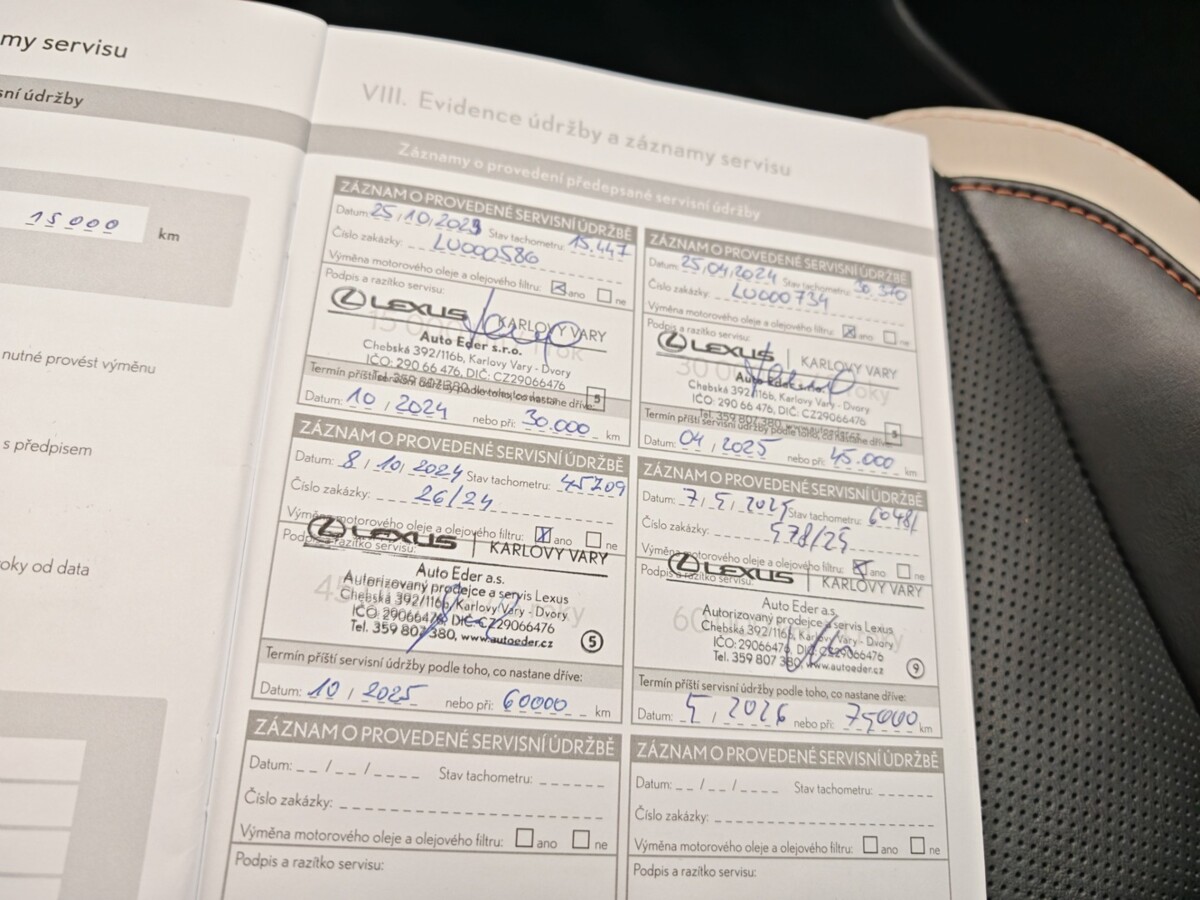 my servisu
sní údržby
15000 km
nutné provést výměnu
s předpisem
roky od data
VIII. Evidence údržby a záznamy servisu
Záznamy o provedení předepsané servisní údržby
ZÁZNAM O PROVEDENÉ SERVISNÍ ÚDRŽBĚ
Datum: 25/10/2023 Stav tachometru: 15.447
Číslo zakázky: LU000586
Výměna motorového oleje a olejového filtru: ☒ ano ☐ ne
Podpis a razítko servisu:
LEXUS KARLOVY VARY
Auto Eder s.r.o.
Chebská 392/116b, Karlovy Vary - Dvory
IČO: 290 66 476, DIČ: CZ29066476
Tel. 359 807 380
5
Termín příští servisní údržby podle toho, co nastane dříve:
Datum: 10 / 2024 nebo při: 30.000 km
ZÁZNAM O PROVEDENÉ SERVISNÍ ÚDRŽBĚ
Datum: 25/04/2024 Stav tachometru: 30.370
Číslo zakázky: LU000734
Výměna motorového oleje a olejového filtru: ☒ ano ☐ ne
Podpis a razítko servisu:
LEXUS | KARLOVY VARY
Auto Eder s.r.o.
Chebská 392/116b, Karlovy Vary - Dvory
IČO: 290 66 476, DIČ: CZ29066476
Tel. 359 807 380,
Termín příští servisní údržby podle toho, co nastane dříve:
Datum: 04 / 2025 nebo při: 45.000 km
ZÁZNAM O PROVEDENÉ SERVISNÍ ÚDRŽBĚ
Datum: 8/10/2024 Stav tachometru: 45709
Číslo zakázky: 26/24
Výměna motorového oleje a olejového filtru: ☒ ano ☐ ne
Podpis a razítko servisu:
LEXUS | KARLOVY VARY
Auto Eder a.s.
Autorizovaný prodejce a servis Lexus
Chebská 392/116b, Karlovy Vary - Dvory
IČO: 29066476, DIČ: CZ29066476
Tel. 359 807 380, www.autoeder.cz
5
Termín příští servisní údržby podle toho, co nastane dříve:
Datum: 10 / 2025 nebo při: 60000 km
ZÁZNAM O PROVEDENÉ SERVISNÍ ÚDRŽBĚ
Datum: 7/5/2025 Stav tachometru: 60481
Číslo zakázky: 578/25
Výměna motorového oleje a olejového filtru: ☒ ano ☐ ne
Podpis a razítko servisu:
LEXUS | KARLOVY VARY
Auto Eder a.s.
Autorizovaný prodejce a servis Lexus
Chebská 392/116b, Karlovy Vary - Dvory
IČO: 29066476, DIČ: CZ29066476
Tel. 359 807 380, www.autoeder.cz
9
Termín příští servisní údržby podle toho, co nastane dříve:
Datum: 5 / 2026 nebo při: 75000 km
ZÁZNAM O PROVEDENÉ SERVISNÍ ÚDRŽBĚ
Datum: __/__/____ Stav tachometru: ______
Číslo zakázky:
Výměna motorového oleje a olejového filtru: ☐ ano ☐ ne
Podpis a razítko servisu:
ZÁZNAM O PROVEDENÉ SERVISNÍ ÚDRŽBĚ
Datum: __/__/____ Stav tachometru: ______
Číslo zakázky:
Výměna motorového oleje a olejového filtru: ☐ ano ☐ ne
Podpis a razítko servisu: